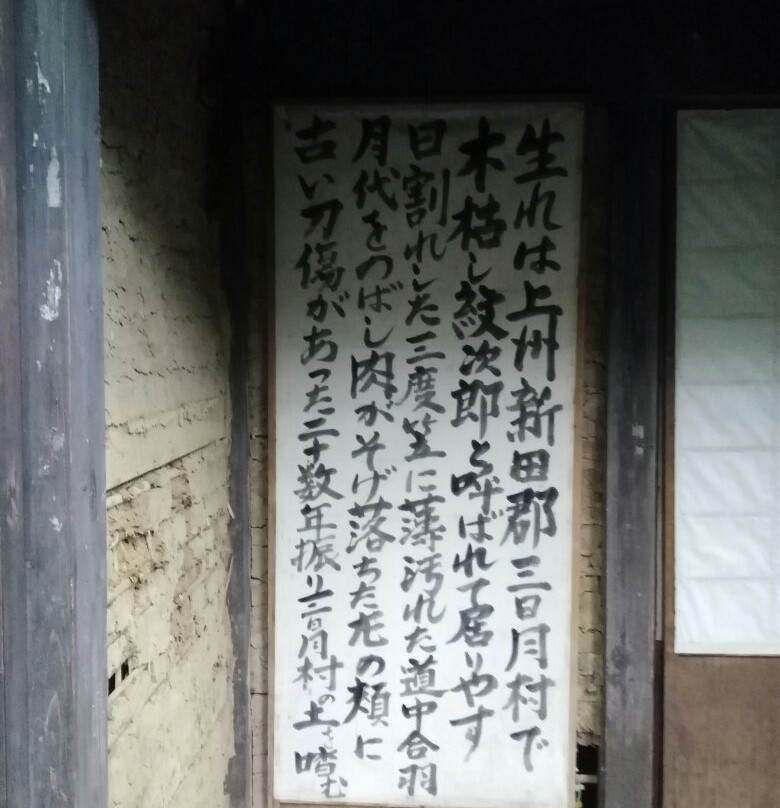 生れは上州新田郡三日月村で
木枯し紋次郎と呼ばれて居りやす
日割れした三度笠に薄汚れた道中合羽
月代をのばし肉がそげ落ちた左の頬に
古い刀傷があった二十数年振り三日月村の土を噛む